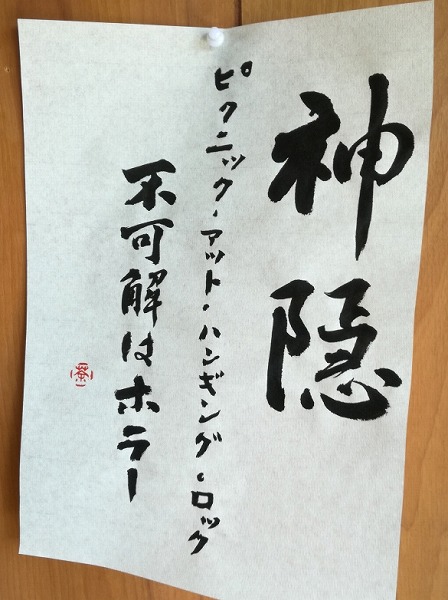 神隠
ピクニック・アット・ハンギング・ロック
不可解はホラー
茶